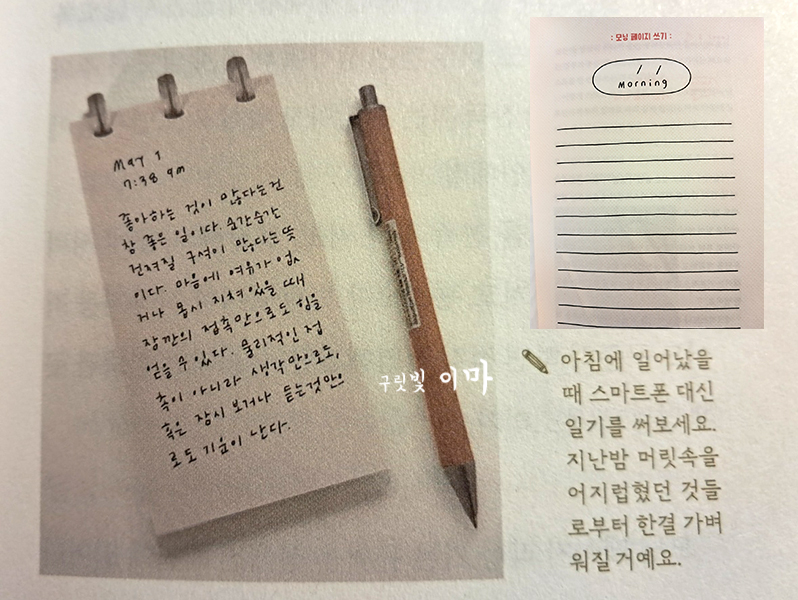 May 1
7:38 am
좋아하는 것이 많다는건
참 좋은 일이다. 순간순간
건져질 구석이 많다는 뜻
이다. 마음에 여유가 없
거나 몹시 지쳐있을 때
잠깐의 접촉만으로도 힘을
얻을 수 있다. 물리적인 접
촉이 아니라 생각만으로도,
혹은 잠시 보거나 듣는것만으
로도 기운이 난다.
구릿빛 이마
: 모닝 페이지 쓰기 :
/ /
Morning
아침에 일어났을
때 스마트폰 대신
일기를 써보세요.
지난밤 머릿속을
어지럽혔던 것들
로부터 한결 가벼
워질 거예요.